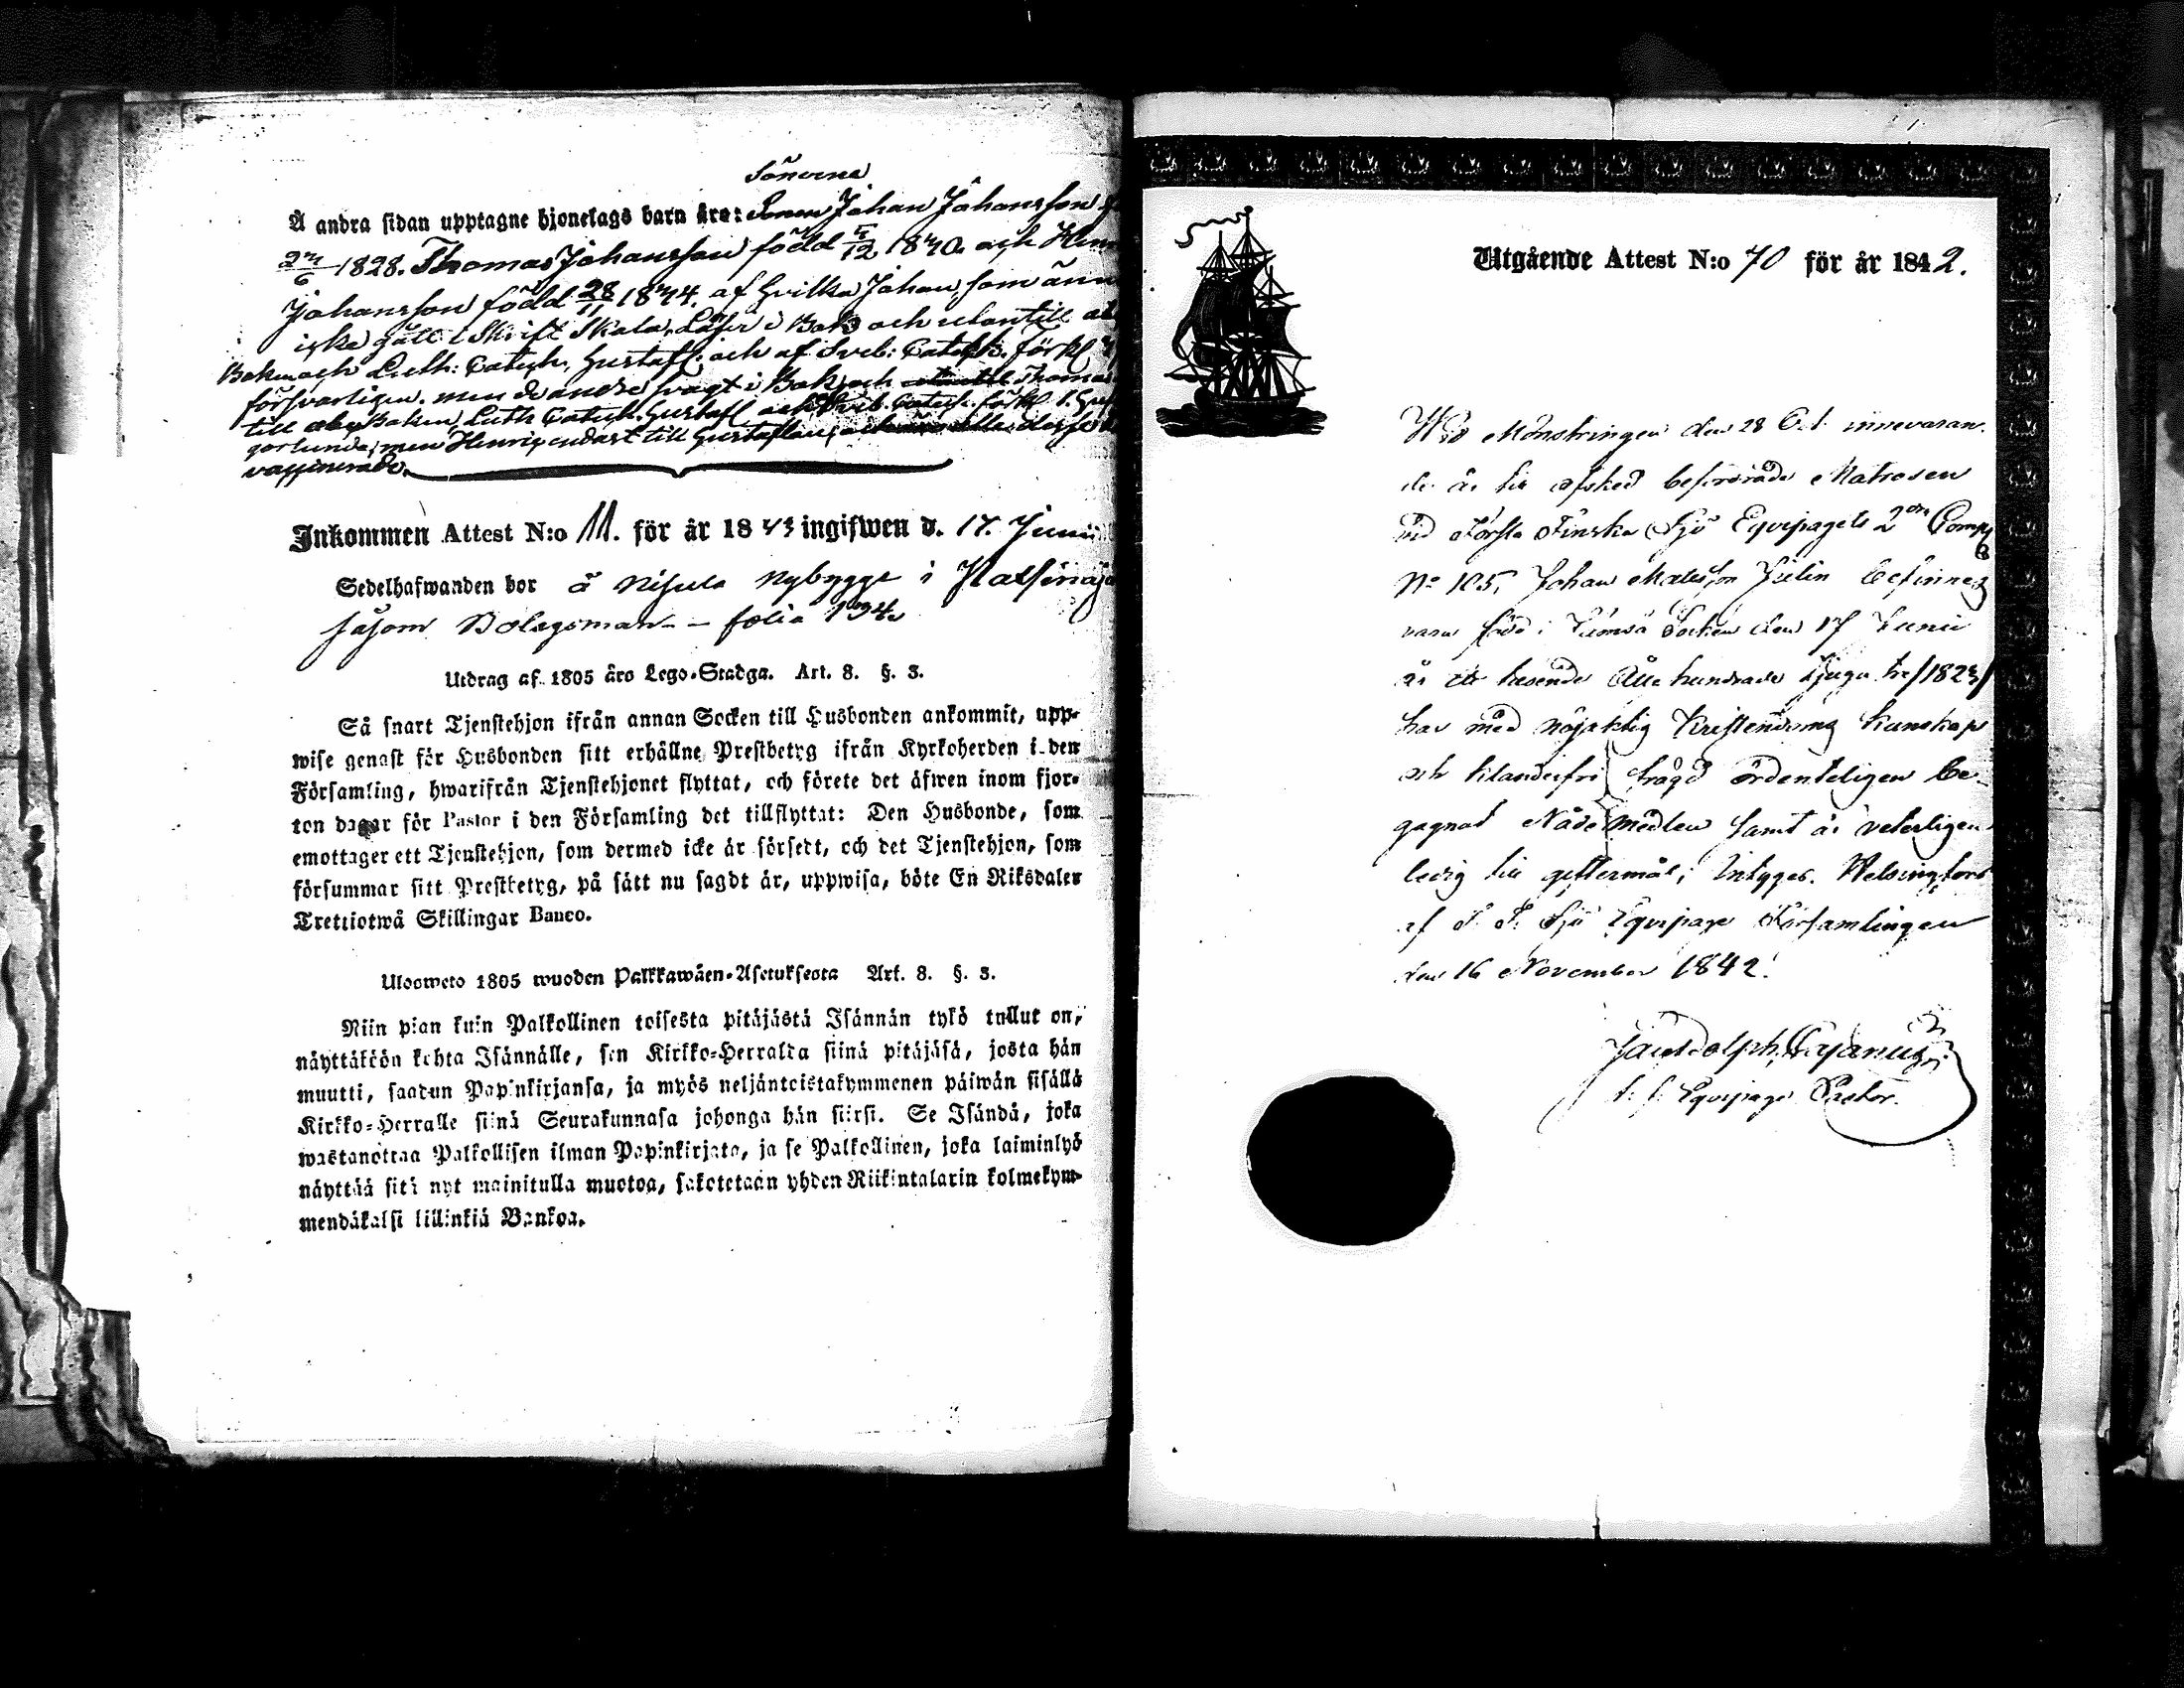 Sönerna
Å andra sidan upptagne hjonelags barn äro: Johan Johansson
1828. Thomas Johansson född 1840. och
Johansson född 28/11 1844. af hvilka Johan, som
icke gått i Skrift Skola, Läser i Bok och utantill
Boken och Luth: Catech. Gustafs: och af Sveb: Catech. förkl
försvarligen. men de andre svagt i Bok, och Thomas
till aby Boken, Luth Catech. Gustafs och Sveb. Catech. förkl.
men Henric endast till
vaccinerade.
Inkommen Attest N:o 11. för år 1843 ingifwen d. 17. Junii
Sedelhafwanden bor å Nisula Nybygge i
såsom Bolagsman - folio 194.
Utdrag af 1805 års Lego-Stadga. Art. 8. §. 3.
Så snart Tjenstehjon ifrån annan Socken till Husbonden ankommit, upp-
wise genast för Husbonden sitt erhållne Prestbetyg ifrån Kyrkoherden i den
Församling, hwarifrån Tjenstehjonet flyttat, och förete det äfwen inom fjor-
ton dagar för Pastor i den Församling det tillflyttat: Den Husbonde, som
emottager ett Tjenstehjon, som dermed icke är försedt, och det Tjenstehjon, som
försummar sitt Prestbetyg, på sätt nu sagdt är, uppwisa, böte En Riksdaler
Trettiotwå Skillingar Banco.
Ulosweto 1805 wuoden Palkkawäen-Asetuksesta Art. 8. §. 3.
Niin pian kuin Palkollinen toisesta pitäjästä Isännän tykö tullut on,
näyttäköön kohta Isännälle, sen Kirkko-Herralta siinä pitäjäsä, josta hän
muutti, saadun Papinkirjansa, ja myös neljäntoistakymmenen päiwän sisällä
Kirkko-Herralle siinä Seurakunnasa johonga hän siirsi. Se Isändä, joka
wastanottaa Palkollisen ilman Papinkirjata, ja se Palkollinen, joka laiminlyö
näyttää sitä nyt mainitulla muotoa, sakotetaan yhden Riikintalarin kolmekym-
mendäkaksi killinkiä Bankoa.
Utgående Attest N:o 70 för år 1842.
Wid Mönstringen den 28 Oct. innevaran-
de år till afsked befordrade Matrosen
vid Första Finska Sjö Equipagets 2dra Comp
No 105, Johan Matsson befinnes
vara född i Sockn den 17 Junii
år ett tusende Åtta hundrade tjugu tre /1823/
har med nöjaktig Kristendoms kunskap
och klanderfri frägd ordenteligen be-
gagnat Nådemedlen samt är veterligen
ledig till giftermål; Intygas. Helsingfors
af F. F. Sjö Equipage Församlingen
den 16 November 1842.
Cajanus
Equipage Pastor.